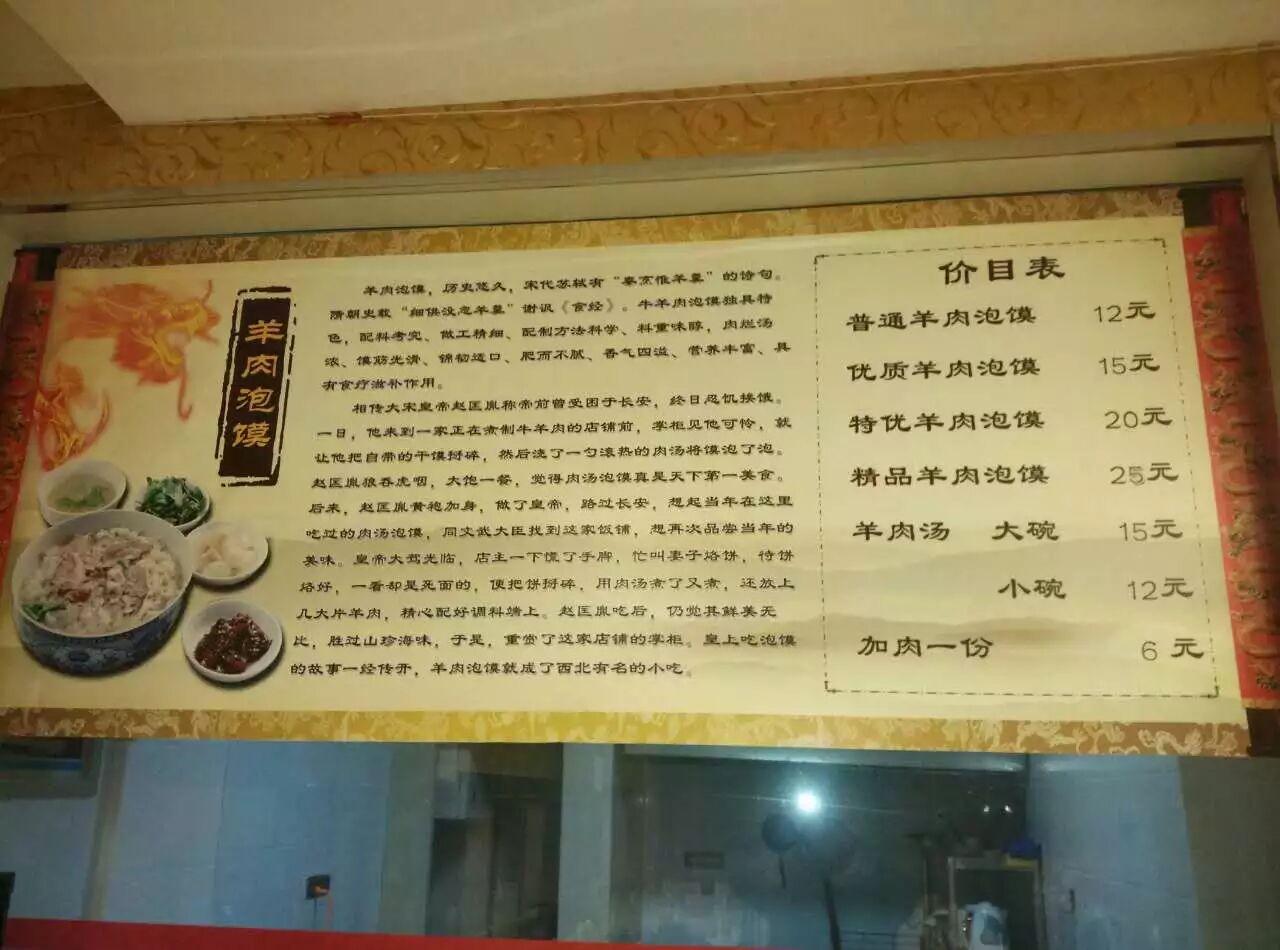 羊肉泡馍
羊肉泡馍，历史悠久，宋代苏轼有“秦烹惟羊羹”的诗句。
隋朝史载“细供没忽羊羹”谢讽《食经》。牛羊肉泡馍独具特
色，配料考究、做工精细、配制方法科学、料重味醇，肉烂汤
浓、馍筋光滑、锦韧适口、肥而不腻、香气四溢、营养丰富、具
有食疗滋补作用。
相传大宋皇帝赵匡胤称帝前曾受困于长安，终日忍饥挨饿。
一日，他来到一家正在煮制牛羊肉的店铺前，掌柜见他可怜，就
让他把自带的干馍掰碎，然后浇了一勺滚热的肉汤将馍泡了泡。
赵匡胤狼吞虎咽，大饱一餐，觉得肉汤泡馍真是天下第一美食。
后来，赵匡胤黄袍加身，做了皇帝，路过长安，想起当年在这里
吃过的肉汤泡馍，同文武大臣找到这家饭铺，想再次品尝当年的
美味。皇帝大驾光临，店主一下慌了手脚，忙叫妻子烙饼，待饼
烙好，一看却是死面的，便把饼掰碎，用肉汤煮了又煮，还放上
几大片羊肉，精心配好调料端上。赵匡胤吃后，仍觉其鲜美无
比，胜过山珍海味，于是，重赏了这家店铺的掌柜。皇上吃泡馍
的故事一经传开，羊肉泡馍就成了西北有名的小吃。
价目表
普通羊肉泡馍 12元
优质羊肉泡馍 15元
特优羊肉泡馍 20元
精品羊肉泡馍 25元
羊肉汤 大碗 15元
小碗 12元
加肉一份 6元